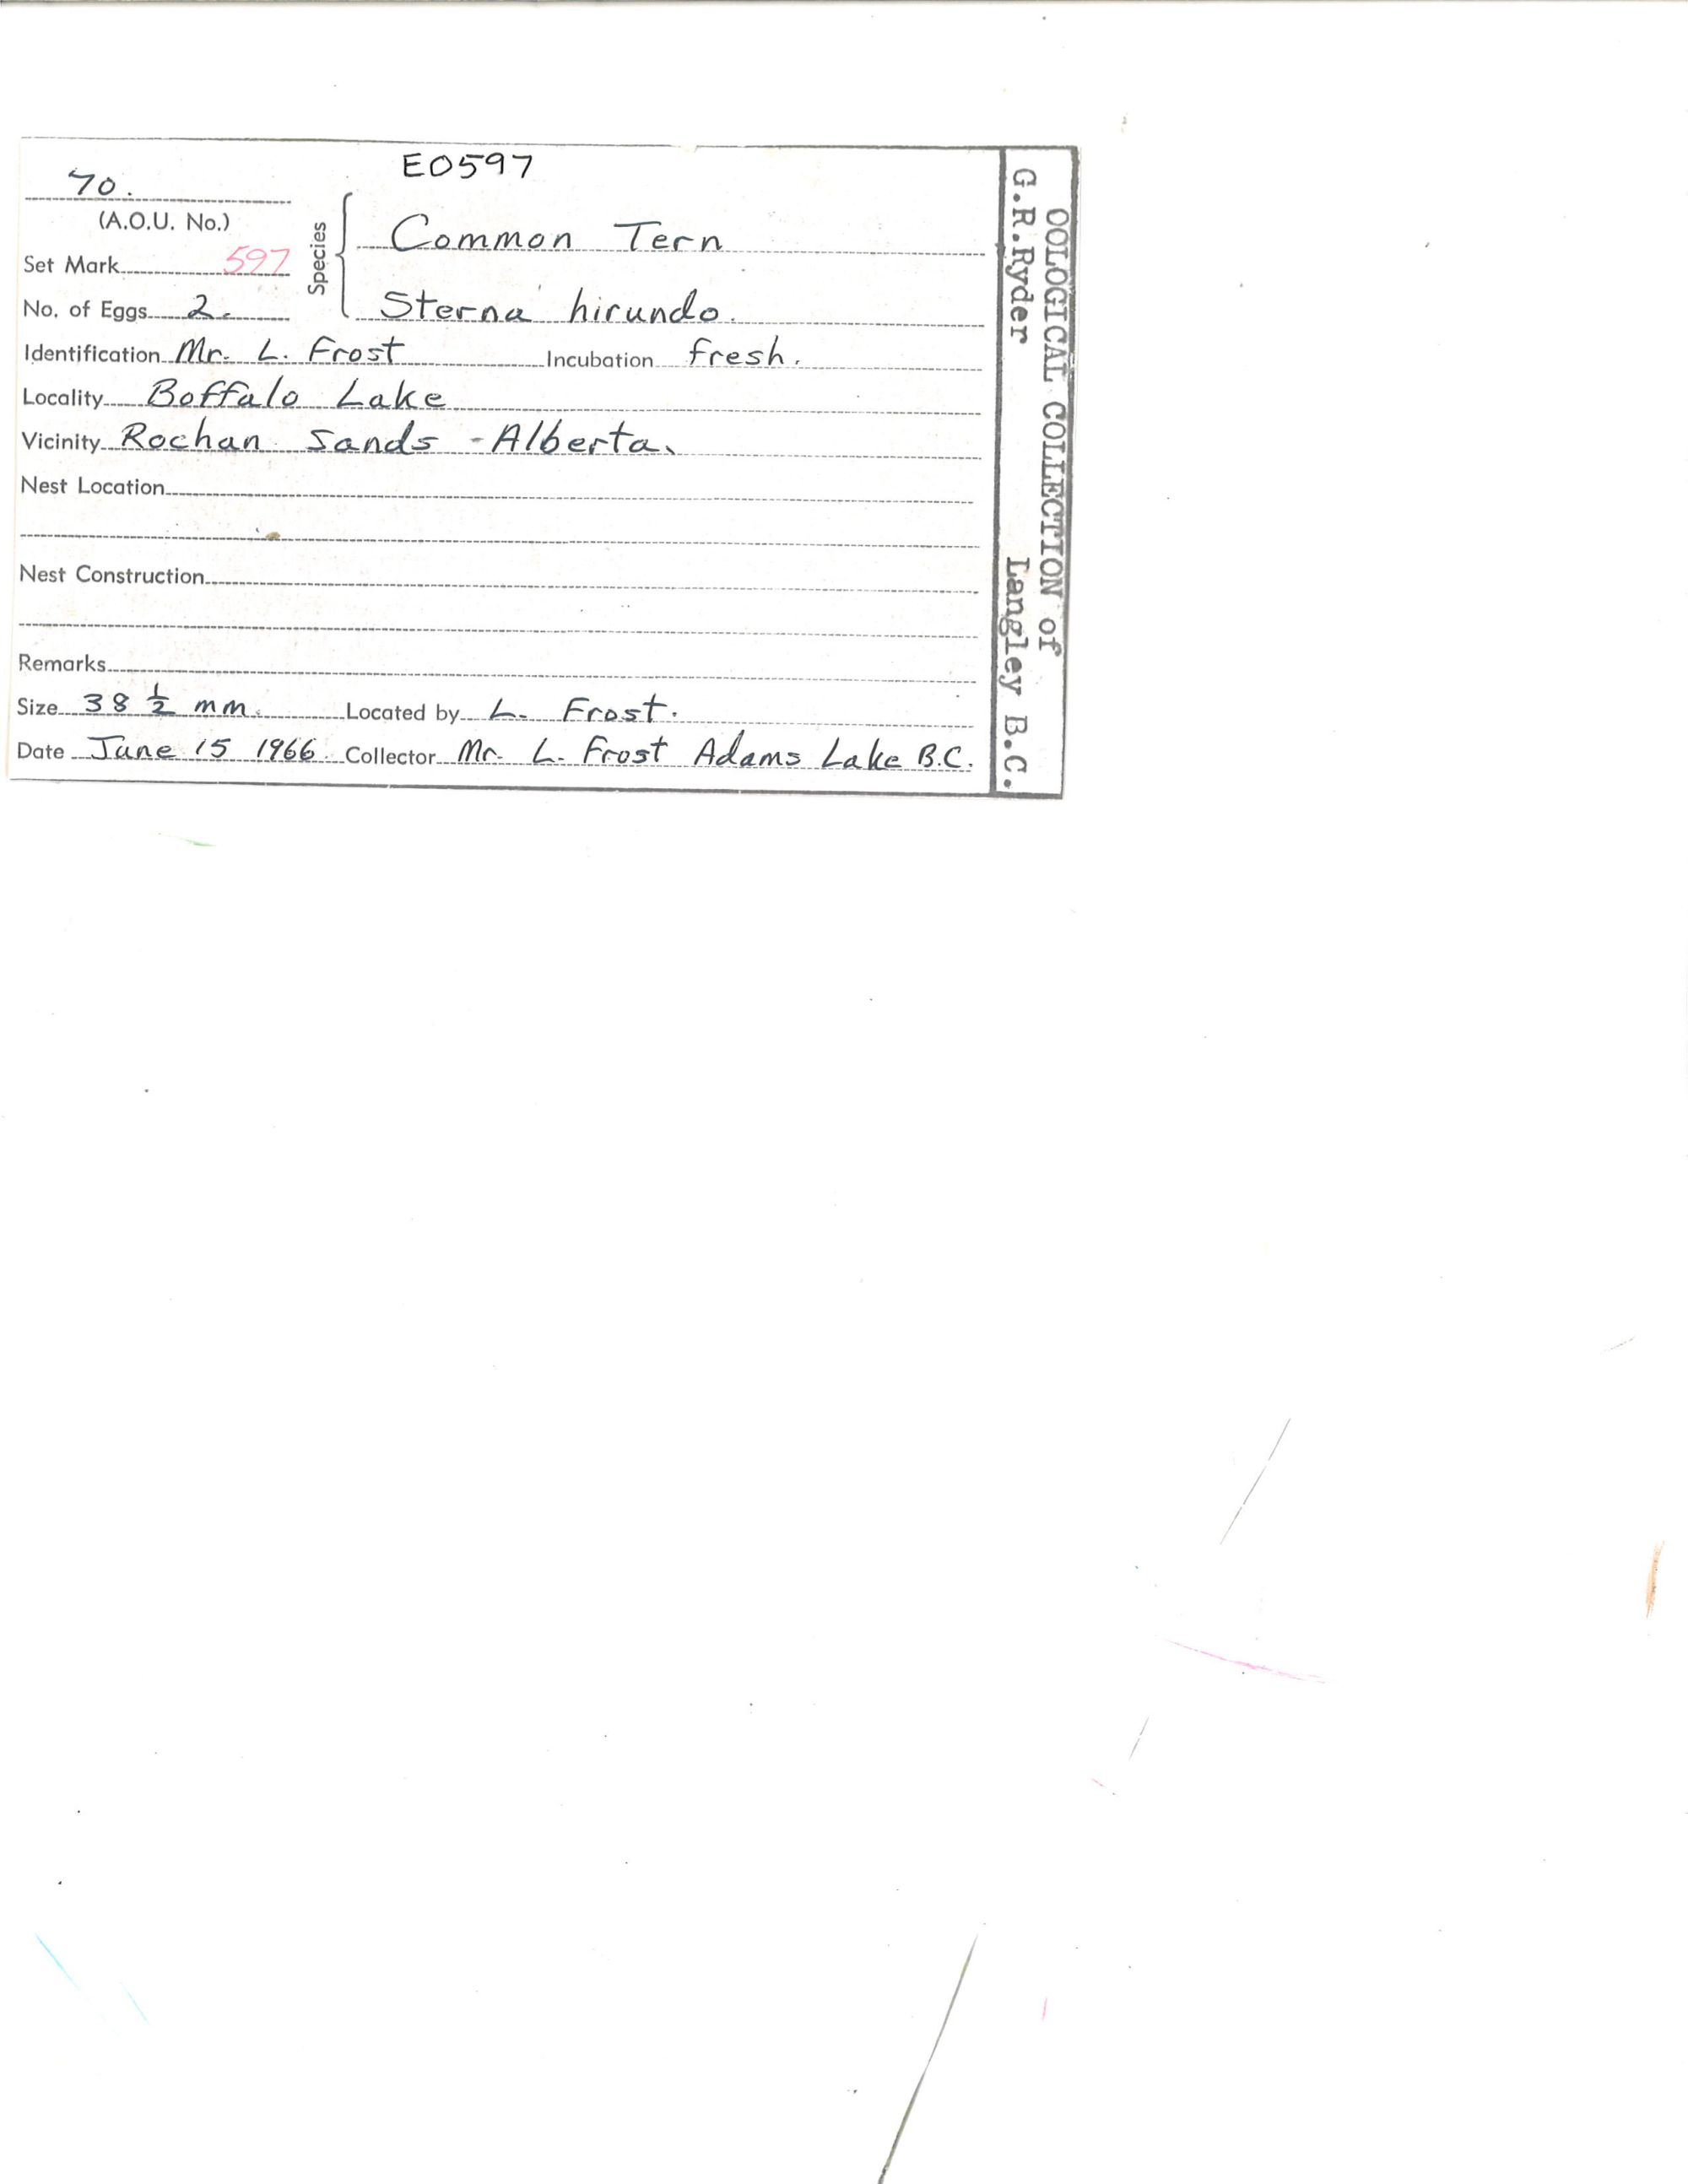 E0597
70.
(A.O.U. No.)
Set Mark 597
No. of Eggs 2.
Species
Common Tern
Sterna hirundo.
Identification Mr. L. Frost Incubation fresh.
Locality Boffalo Lake
Vicinity Rochan Sands - Alberta.
Nest Location
Nest Construction
Remarks
Size 38 ½ mm. Located by L. Frost.
Date June 15 1966. Collector Mr. L. Frost Adams Lake B.C.
OOLOGICAL COLLECTION of
G.R.Ryder Langley B.C.